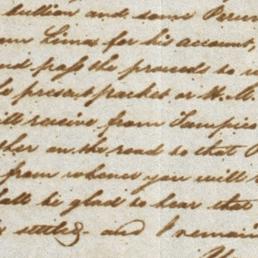 bullion and some Peru
from Lima for his account,
and pass the proceeds to
the present packet or H. M.
will receive from Tampico
on the road to that
from whence you will
shall be glad to hear that
settled - and I remain